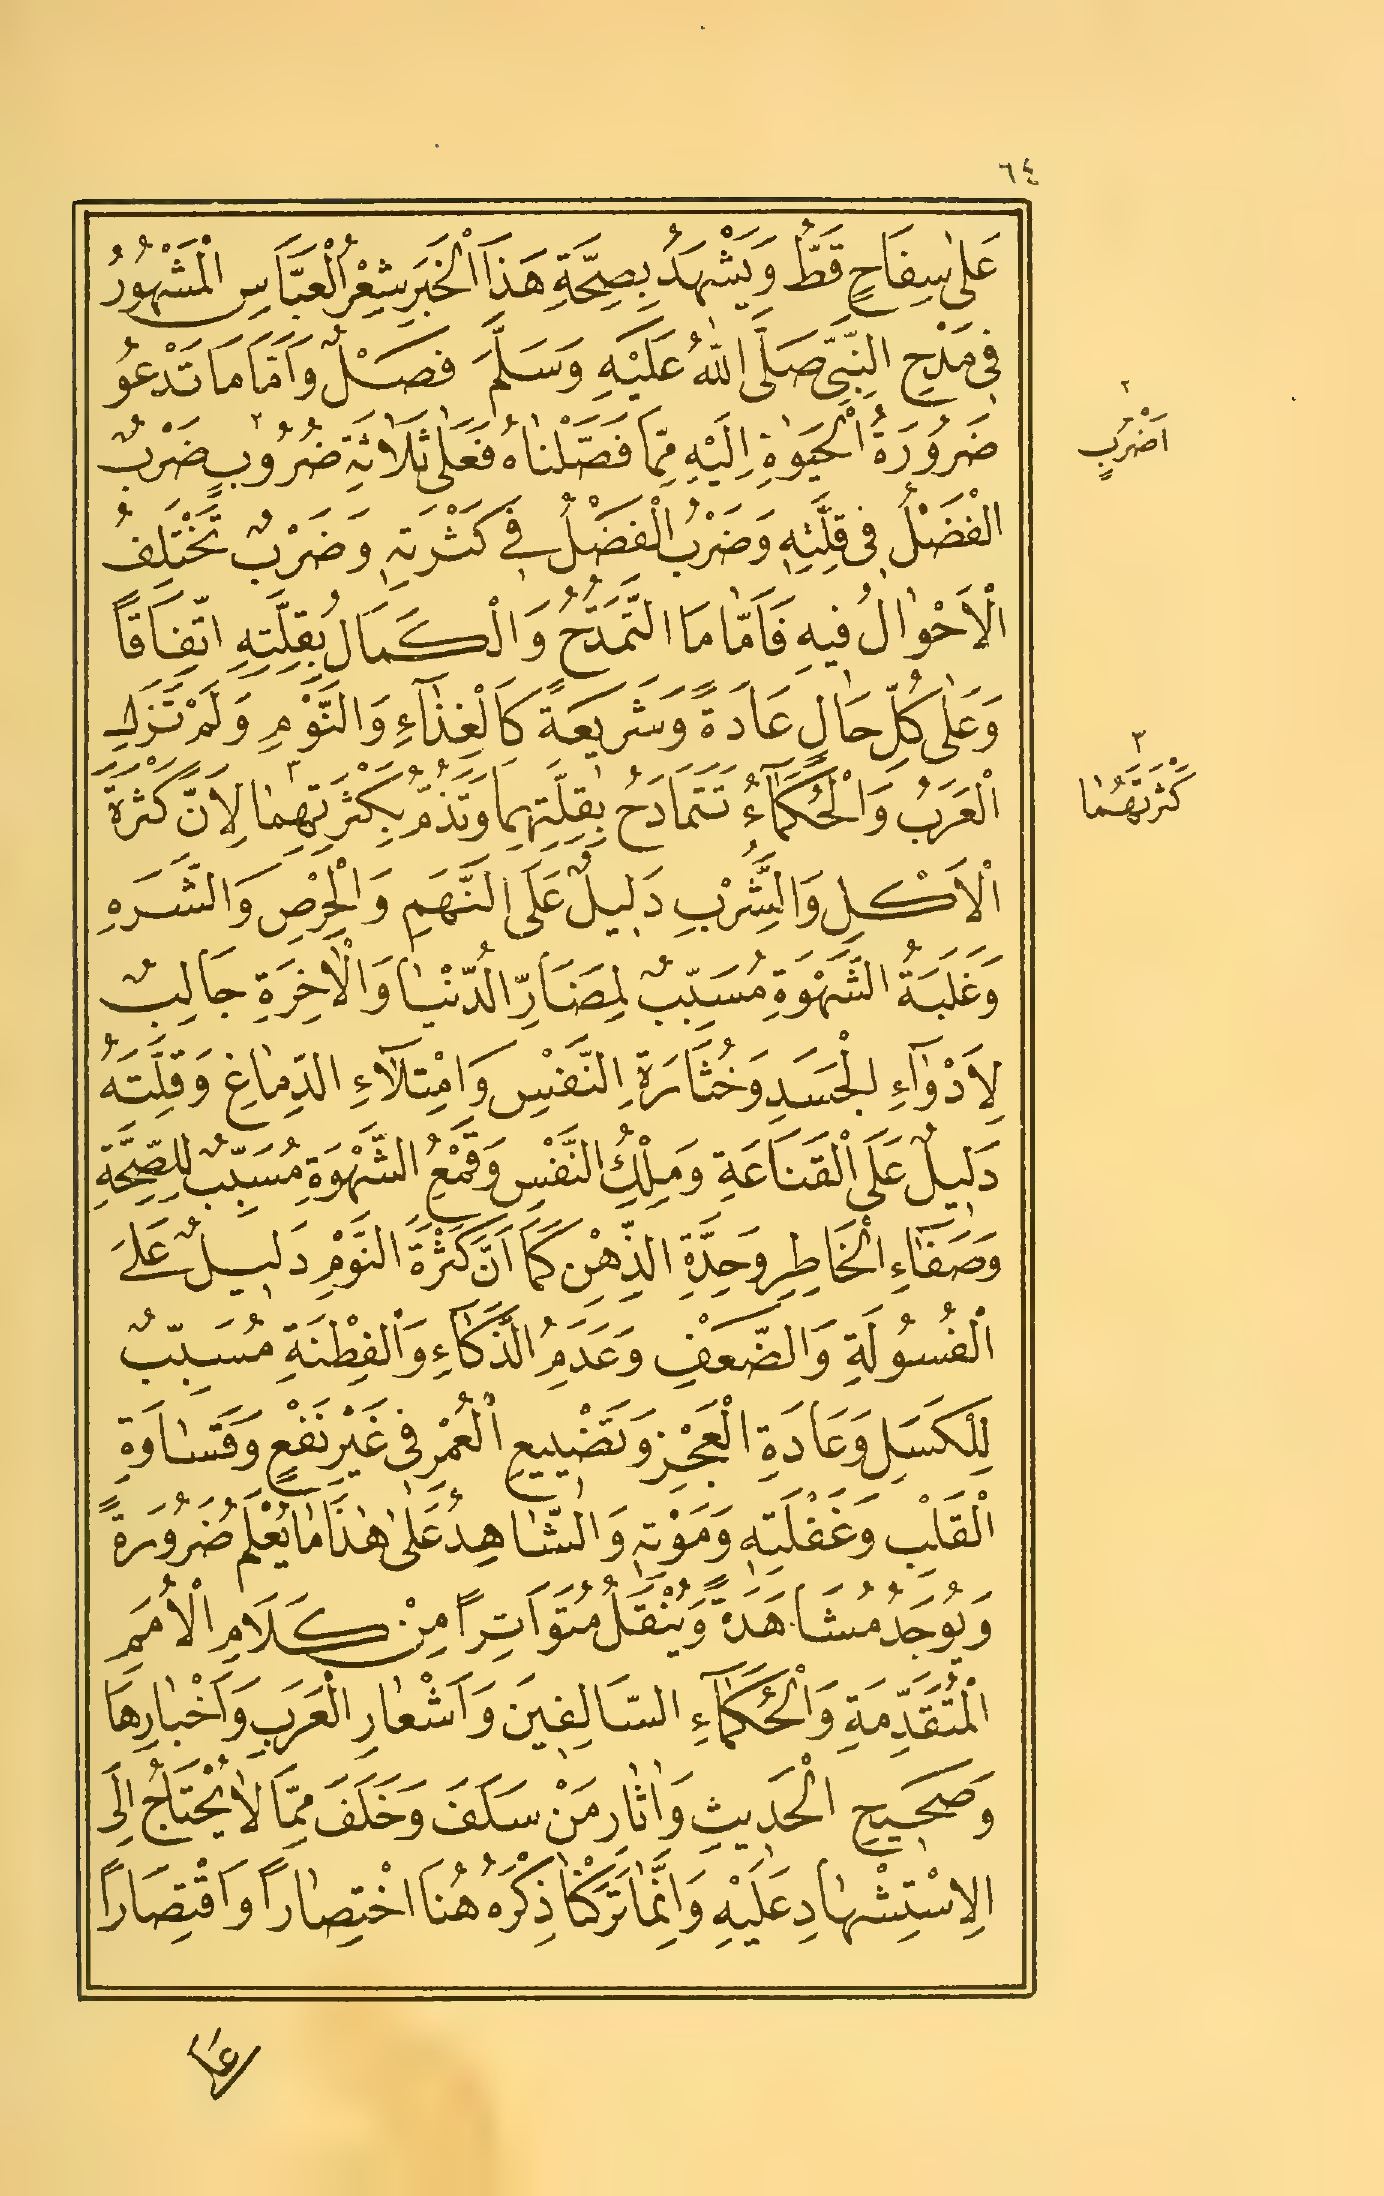 ٦٤
عَلٰى سِفَاحٍ قَطُّ وَيَشْهَدُ بِصِحَّةِ هَذَا الْخَبَرِ شِعْرُ الْعَبَّاسِ الْمَشْهُورُ
فِى مَدْحِ النَّبِىِّ صَلَّى اللهُ عَلَيْهِ وَسَلَّمَ فَصْلٌ وَاَمَّا مَا تَدْعُو
ضَرُورَةُ الْحَيٰوةِ اِلَيْهِ مِمَّا فَصَّلْنَاهُ فَعَلٰى ثَلَاثَةِ ضُرُوبٍ ٢ ضَرْبٌ
٢
اَضْرُبٍ
الْفَضْلُ فِى قِلَّتِهِ وَضَرْبٌ الْفَضْلُ فِى كَثْرَتِهِ وَضَرْبٌ تَخْتَلِفُ
الْاَحْوَالُ فِيهِ فَاَمَّا مَا التَّمَدُّحُ وَالْكَمَالُ بِقِلَّتِهِ اتِّفَاقًا
وَعَلٰى كُلِّ حَالٍ عَادَةً وَشَرِيعَةً كَالْغِذَاءِ وَالنَّوْمِ وَلَمْ تَزَلِ
الْعَرَبُ وَالْحُكَمَاءُ تَتَمَادَحُ بِقِلَّتِهِمَا وَتَذُمُّ بِكَثْرَتِهِمَا ٣ لِاَنَّ كَثْرَةَ
٣
كَثْرَتَهُمَا
الْاَكْلِ وَالشُّرْبِ دَلِيلٌ عَلَى النَّهَمِ وَالْحِرْصِ وَالشَّرَهِ
وَغَلَبَةُ الشَّهْوَةِ مُسَبِّبٌ لِمَضَارِّ الدُّنْيَا وَالْاٰخِرَةِ جَالِبٌ
لِاَدْوَاءِ الْجَسَدِ وَخُثَارَةِ النَّفْسِ وَامْتِلَاءِ الدِّمَاغِ وَقِلَّتَهُ
دَلِيلٌ عَلَى الْقَنَاعَةِ وَمِلْكِ النَّفْسِ وَقَمْعُ الشَّهْوَةِ مُسَبِّبٌ لِلصِّحَّةِ
وَصَفَاءِ الْخَاطِرِ وَحِدَّةِ الذِّهْنِ كَمَا اَنَّ كَثْرَةَ النَّوْمِ دَلِيلٌ عَلٰى
الْفُسُولَةِ وَالضَّعْفِ وَعَدَمِ الذَّكَاءِ وَالْفِطْنَةِ مُسَبِّبٌ
لِلْكَسَلِ وَعَادَةِ الْعَجْزِ وَتَضْيِيعِ الْعُمْرِ فِى غَيْرِ نَفْعٍ وَقَسَاوَةِ
الْقَلْبِ وَغَفْلَتِهِ وَمَوْتِهِ وَالشَّاهِدُ عَلٰى هٰذَا مَا يُعْلَمُ ضَرُورَةً
وَيُوجَدُ مُشَاهَدَةً وَيُنْقَلُ مُتَوَاتِرًا مِنْ كَلَامِ الْاُمَمِ
الْمُتَقَدِّمَةِ وَالْحُكَمَاءِ السَّالِفِينَ وَاَشْعَارِ الْعَرَبِ وَاَخْبَارِهَا
وَصَحِيحِ الْحَدِيثِ وَاٰثَارِ مَنْ سَلَفَ وَخَلَفَ مِمَّا لَا يُحْتَاجُ اِلَى
الِاسْتِشْهَادِ عَلَيْهِ وَاِنَّمَا تَرَكْنَا ذِكْرَهُ هُنَا اخْتِصَارًا وَاقْتِصَارًا
عَلَى